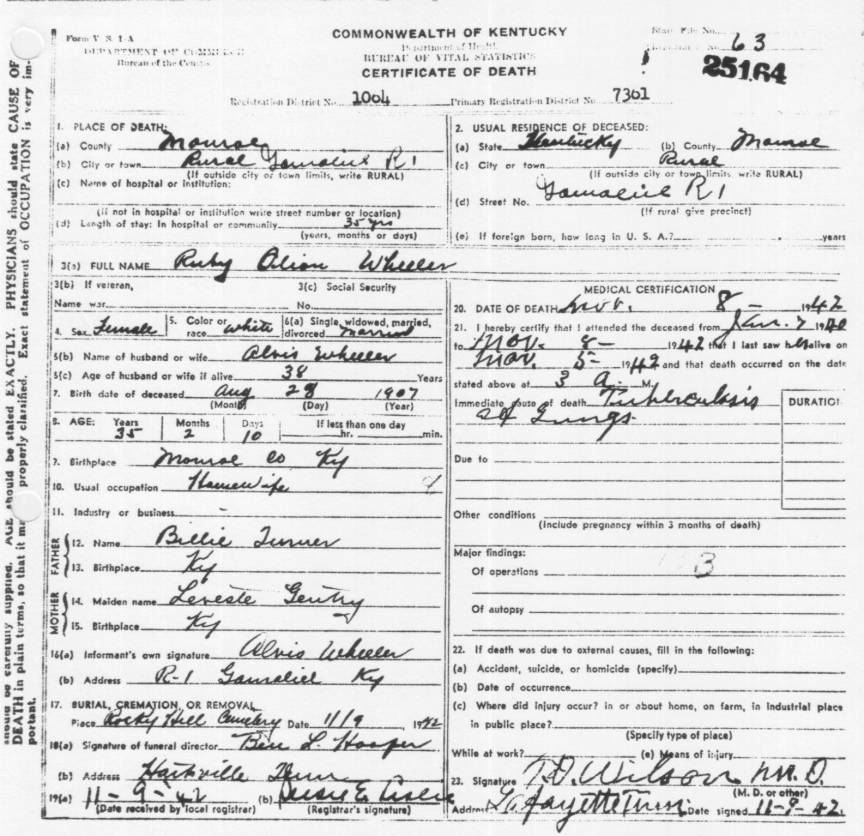 Form V. S. 1-A
DEPARTMENT OF COMMERCE
Bureau of the Census
COMMONWEALTH OF KENTUCKY
Department of Health
BUREAU OF VITAL STATISTICS
CERTIFICATE OF DEATH
State File No.
No. 63
25164
Registration District No. 1004 Primary Registration District No. 7301
1. PLACE OF DEATH:
(a) County Monroe
(b) City or town Rural Gamaliel R1
(If outside city or town limits, write RURAL)
(c) Name of hospital or institution:
(If not in hospital or institution write street number or location)
(d) Length of stay: In hospital or community 35 yrs
(years, months or days)
2. USUAL RESIDENCE OF DECEASED:
(a) State Kentucky (b) County Monroe
(c) City or town Rural
(If outside city or town limits, write RURAL)
(d) Street No. Gamaliel R1
(If rural give precinct)
(e) If foreign born, how long in U. S. A.? years
3(a) FULL NAME Ruby Wheeler
3(b) If veteran,
Name war
3(c) Social Security
No.
4. Sex Female 5. Color or race white 6(a) Single, widowed, married, divorced Married
6(b) Name of husband or wife Alvis Wheeler
6(c) Age of husband or wife if alive 38 Years
7. Birth date of deceased Aug 28 1907
(Month) (Day) (Year)
8. AGE: Years Months Days If less than one day
35 2 10 hr. min.
9. Birthplace Monroe Co Ky
10. Usual occupation Housewife
11. Industry or business -
FATHER
12. Name Billie Turner
13. Birthplace Ky
MOTHER
14. Maiden name Leveste Gentry
15. Birthplace Ky
16(a) Informant's own signature Alvis Wheeler
(b) Address R-1 Gamaliel Ky
17. BURIAL, CREMATION, OR REMOVAL
Place Rocky Hill Cemetery Date 11/9 1942
18(a) Signature of funeral director Ben L. Hooper
(b) Address Hartsville Tenn
19(a) 11-9-42 (b)
(Date received by local registrar) (Registrar's signature)
MEDICAL CERTIFICATION
20. DATE OF DEATH Nov. 8- 1942
21. I hereby certify that I attended the deceased from Jan. 7 1940
to Nov. 8- 1942 that I last saw her alive on
Nov. 5- 1942 and that death occurred on the date
stated above at 3 A. M.
Immediate cause of death Tuberculosis
of Lungs
DURATION
Due to
Other conditions
(Include pregnancy within 3 months of death)
Major findings:
Of operations
Of autopsy
22. If death was due to external causes, fill in the following:
(a) Accident, suicide, or homicide (specify)
(b) Date of occurrence
(c) Where did injury occur? in or about home, on farm, in industrial place
in public place?
(Specify type of place)
While at work? (e) Means of injury
23. Signature T. D. Wilson M.D.
(M. D. or other)
Address Lafayette Tenn. Date signed 11-9-42.
should be carefully supplied. AGE should be stated EXACTLY. PHYSICIANS should state CAUSE OF
DEATH in plain terms, so that it may properly classified. Exact statement of OCCUPATION is very im-
portant.